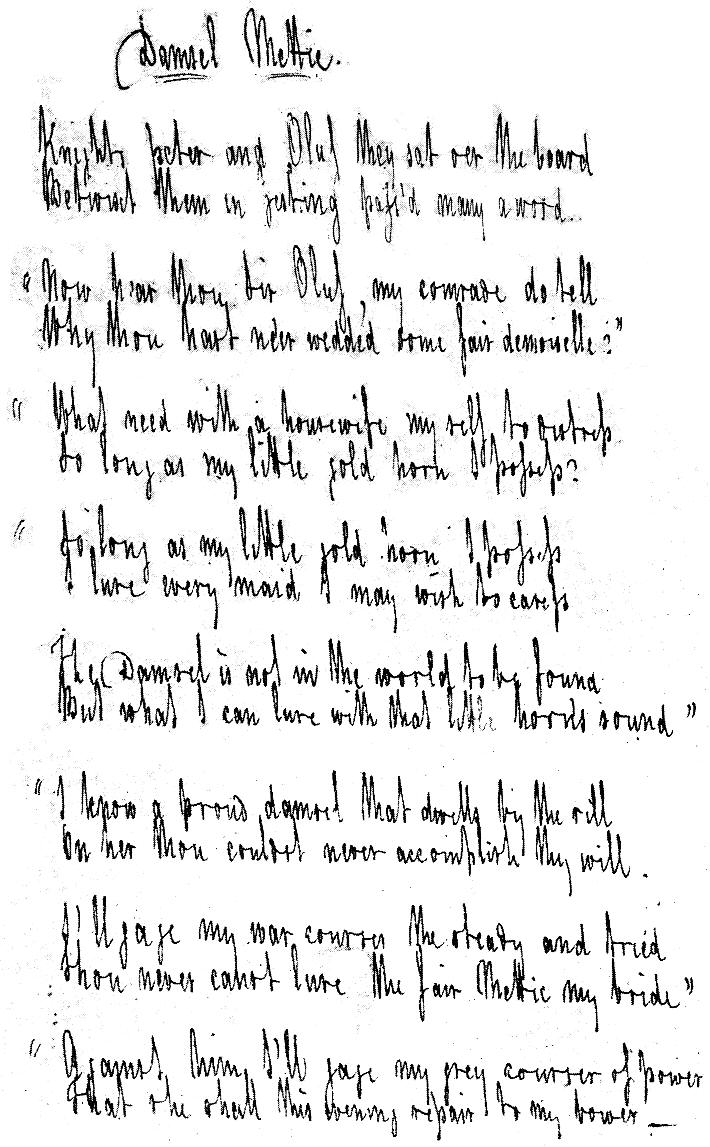 Damsel Mettie.
Knight Peter and Oluf they sat oer the board
Betwixt them in jesting pass'd many a word.
"Now hear thou, Sir Oluf, my comrade do tell
Why thou hast ne'er wedded some fair demoiselle?"
"What need with a housewife my self to
So long as my little gold horn I possess?
"So long as my little gold horn I possess
I lure every maid I may wish to caress
The Damsel is not in the world to be found
But what I can lure with that little horn's sound"
"I know a proud damsel that dwells by the rill
On her thou couldst never accomplish thy will.
I'll gage my war courser the steady and tried
Thou never canst lure the fair Mettie my bride"
"Against him, I'll gage my grey courser of power
That she shall this evening repair to my bower—